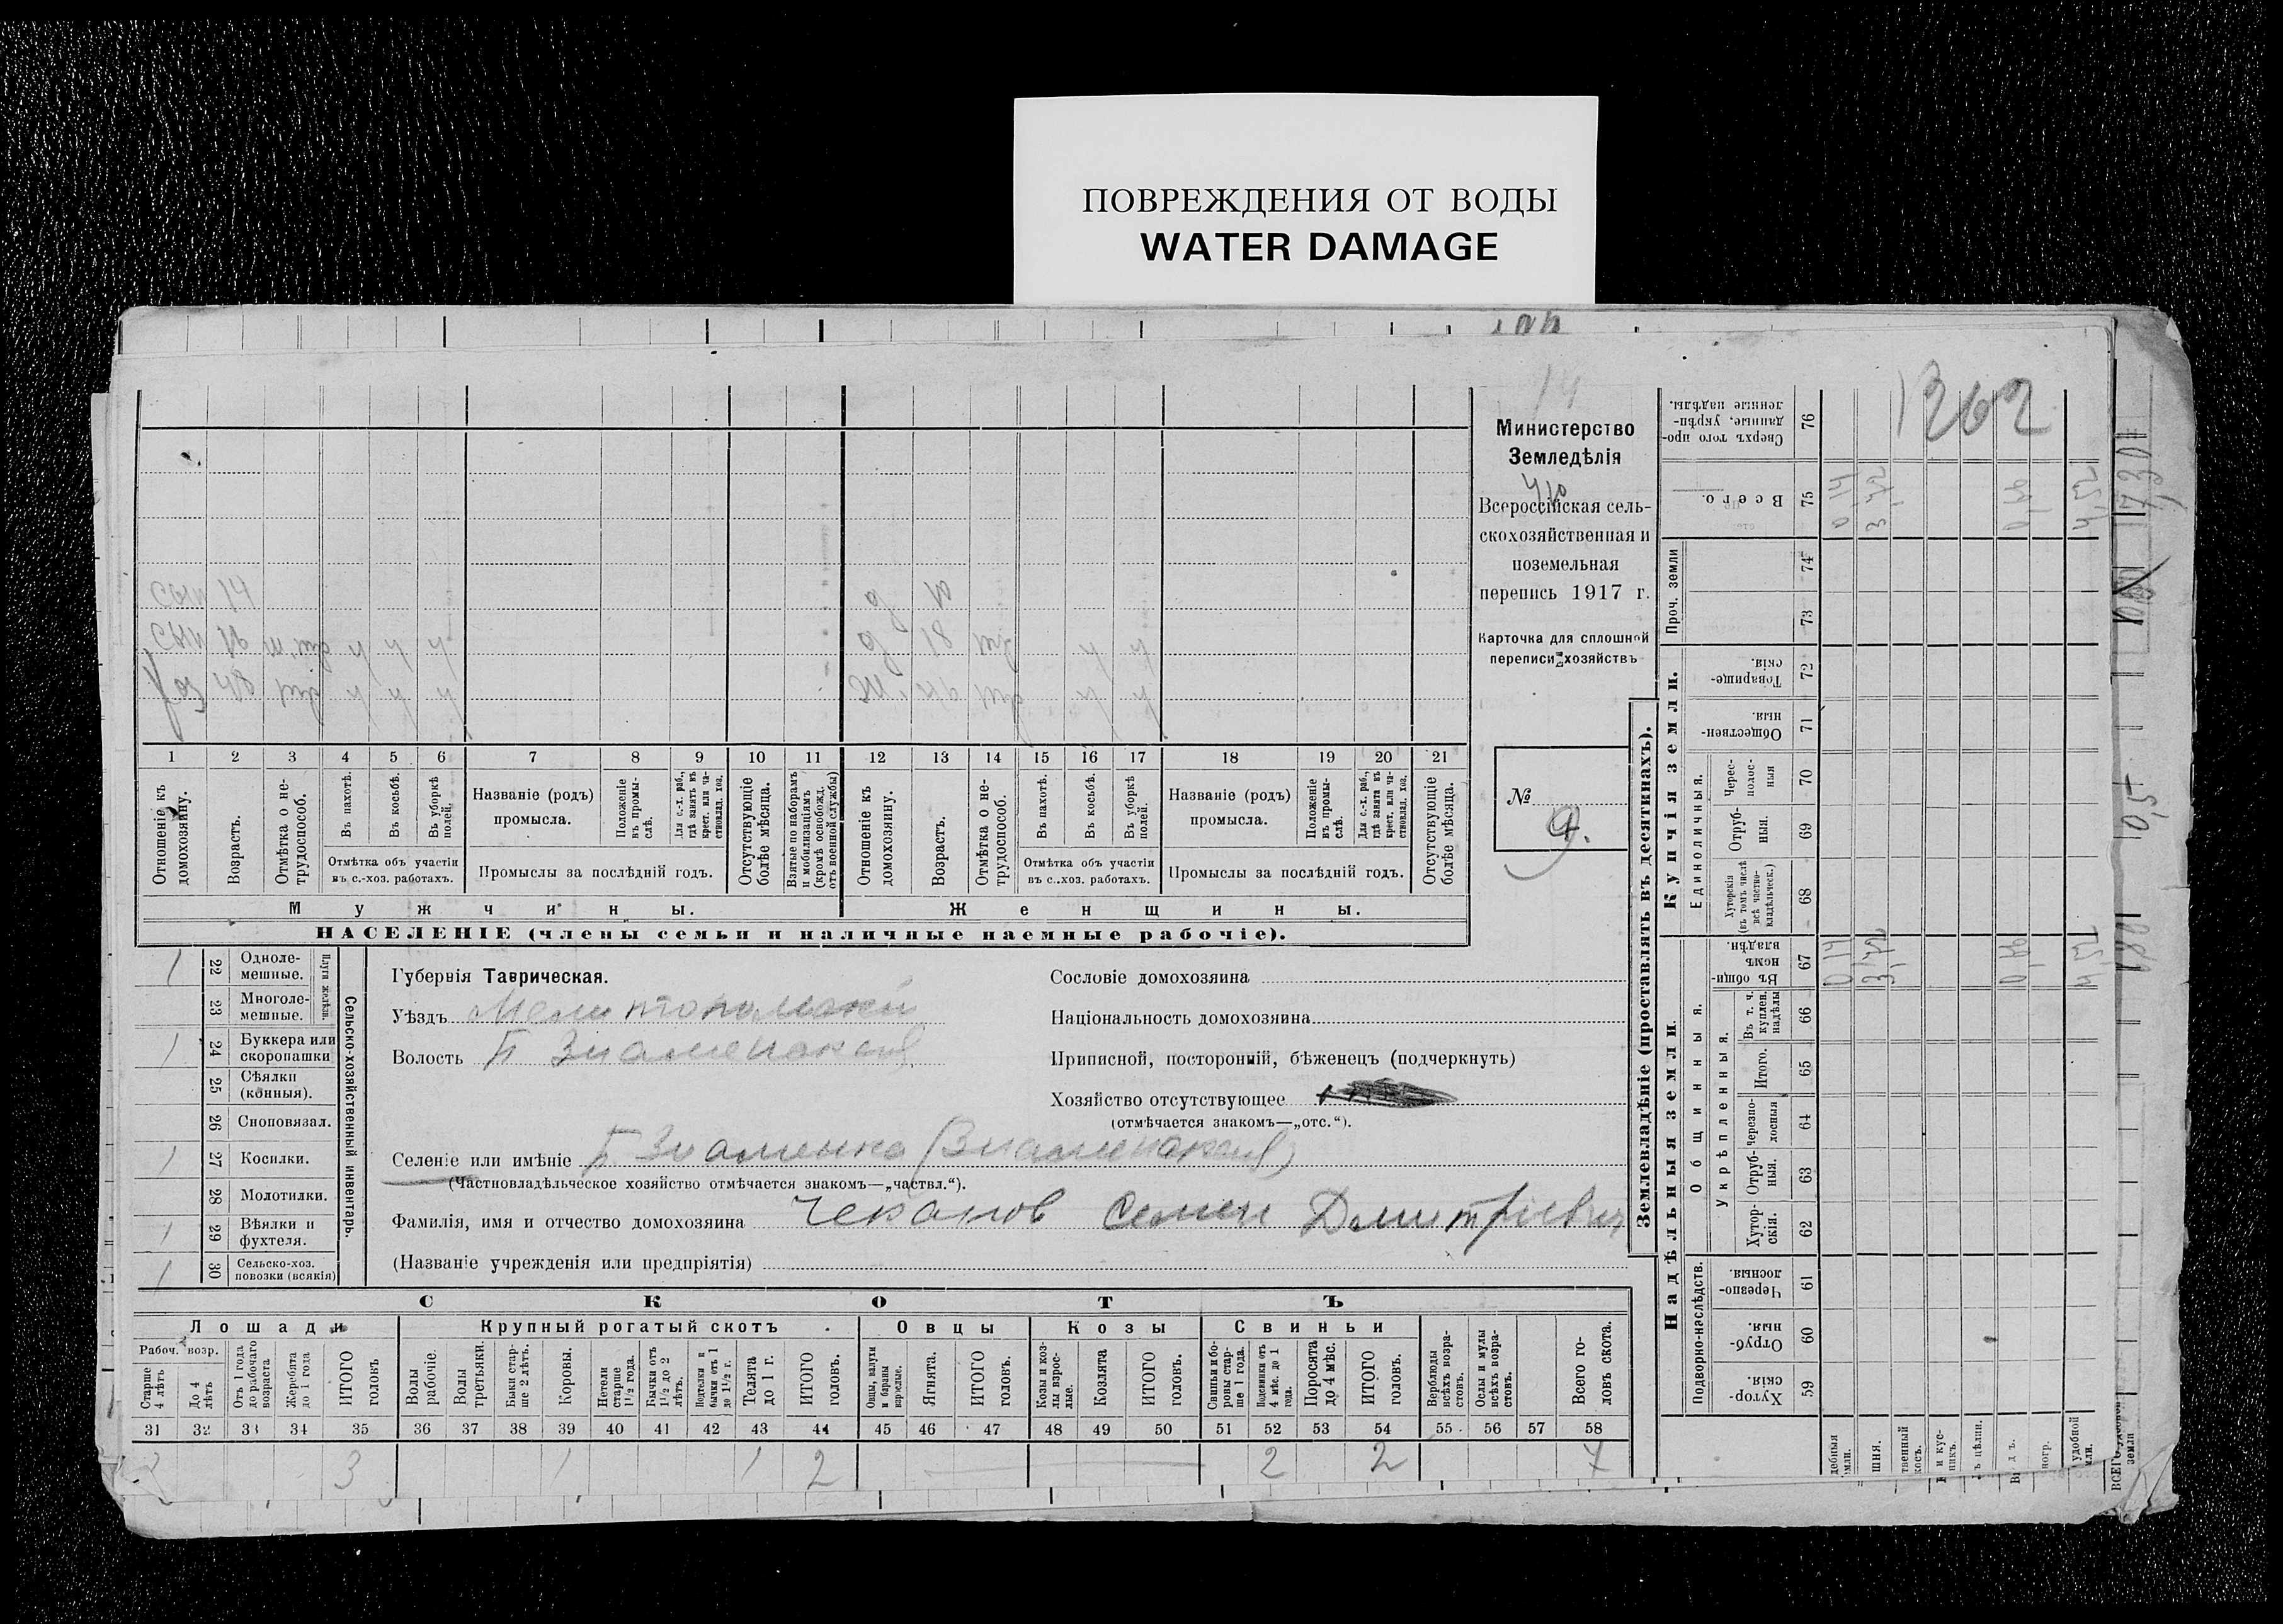 ПОВРЕЖДЕНИЯ ОТ ВОДЫ
WATER DAMAGE
14
1262
Министерство
Земледѣлія
Всероссійская сель-
скохозяйственная и
поземельная
перепись 1917 г.
Карточка для сплошной
переписи хозяйствъ
№ 9.
сын 14
сын 16
хоз 48
д 10
д 18
1 2 3 4 5 6 7 8 9 10 11 12 13 14 15 16 17 18 19 20 21
Отношеніе къ домохозяину.
Возрастъ.
Отмѣтка о не-трудоспособ.
Въ пахотѣ.
Въ косьбѣ.
Въ уборкѣ полей.
Отмѣтка объ участіи
въ с.-хоз. работахъ.
Названіе (родъ)
промысла.
Положеніе въ промы-слѣ.
Для с.-х. раб., гдѣ занятъ въ крест. или ча-стновлад. хоз.
Промыслы за послѣдній годъ.
Отсутствующіе болѣе мѣсяца.
Взятые по наборамъ и мобилизаціямъ (кромѣ освобожд. отъ военной службы)
Отношеніе къ домохозяину.
Возрастъ.
Отмѣтка о не-трудоспособ.
Въ пахотѣ.
Въ косьбѣ.
Въ уборкѣ полей.
Отмѣтка объ участіи
въ с.-хоз. работахъ.
Названіе (родъ)
промысла.
Положеніе въ промы-слѣ.
Для с.-х. раб., гдѣ занята въ крест. или ча-стновлад. хоз.
Промыслы за послѣдній годъ.
Отсутствующіе болѣе мѣсяца.
Мужчины.
Женщины.
НАСЕЛЕНІЕ (члены семьи и наличные наемные рабочіе).
Сельско-хозяйственный инвентарь.
Плуги желѣзн.
1 22 Одноле-мешные.
23 Многоле-мешные.
1 24 Буккера или скоропашки
25 Сѣялки (конныя).
26 Сноповязал.
1 27 Косилки.
28 Молотилки.
1 29 Вѣялки и фухтеля.
1 30 Сельско-хоз. повозки (всякія)
Губернія Таврическая.
Уѣздъ Мелитопольскій
Волость Б Знаменская
Сословіе домохозяина
Національность домохозяина
Приписной, посторонній, бѣженецъ (подчеркнуть)
Хозяйство отсутствующее
(отмѣчается знакомъ—„отс.“).
Селеніе или имѣніе Б Знаменка (Знаменская)
(Частновладѣльческое хозяйство отмѣчается знакомъ—„частвл.“).
Фамилія, имя и отчество домохозяина Чеканов Семен Дмитріевич
(Названіе учрежденія или предпріятія)
СКОТЪ
Лошади
Крупный рогатый скотъ
Овцы
Козы
Свиньи
Рабоч. возр.
Старше 4 лѣтъ
До 4 лѣтъ
Отъ 1 года до рабочаго возраста
Жеребята до 1 года
ИТОГО головъ
Волы рабочіе.
Волы третьяки.
Быки стар-ше 2 лѣтъ.
Коровы.
Нетели старше 1½ года.
Бычки отъ 1½ до 2 лѣтъ.
Подтелки и бычки отъ 1 до 1½ г.
Телята до 1 г.
ИТОГО головъ.
Овцы, валухи и бараны взрослые.
Ягнята.
ИТОГО головъ.
Козы и коз-лы взрос-лые.
Козлята
ИТОГО головъ.
Свиньи и бо-ровы стар-ше 1 года.
Подсвинки отъ 4 мѣс. до 1 года.
Поросята до 4 мѣс.
ИТОГО головъ.
Верблюды всѣхъ возра-стовъ.
Ослы и мулы всѣхъ возра-стовъ.
Всего го-ловъ скота.
31 32 33 34 35 36 37 38 39 40 41 42 43 44 45 46 47 48 49 50 51 52 53 54 55 56 57 58
3 1 1 2 2 2 7
Землевладѣніе (проставлять въ десятинахъ).
Надѣльныя земли.
Купчія земли.
Проч. земли
Подворно-наслѣдств.
Общинныя.
Укрѣпленныя.
Единоличныя.
Хутор-скія. 59
Отруб-ныя. 60
Черезпо-лосныя. 61
Хутор-скія. 62
Отруб-ныя. 63
Черезпо-лосныя 64
Итого. 65
Въ т. ч. куплен. надѣлы 66
Въ общин-номъ владѣн. 67
Хуторскія (въ томъ числѣ всѣ частно-владѣльческ.) 68
Отруб-ныя. 69
Черес-полос-ныя 70
Обществен-ныя. 71
Товарище-скія. 72
73
74
Всего. 75
Сверхъ того про-данные, укрѣп-ленные надѣлы. 76
0,14 3,72
4,52